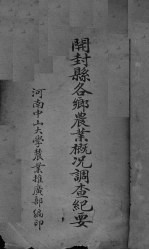 開封縣各鄉農業概况調查紀要
河南中山大學農業推廣部編印